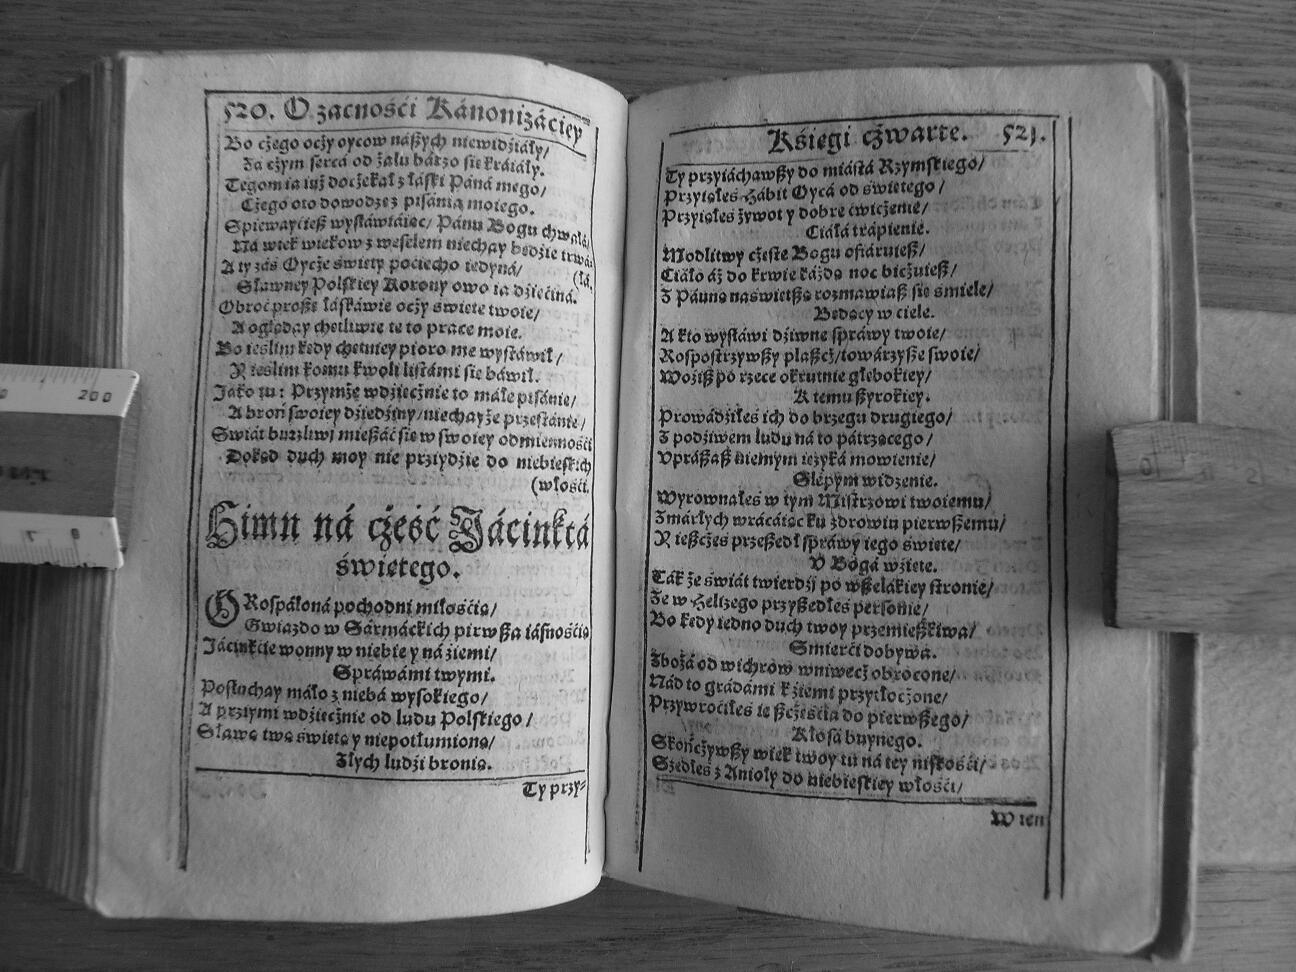 520. O zacnośći Kánonizáciey
Bo cżego ocży oycow nászych niewidźiáły/
Zá cżym sercá od żalu bárzo się kráiáły.
Tegom ia iuż docżekał z łáski Páná mego/
Cżego oto dowodzę z pisánia moiego.
Spiewayćież wysłáwiáiąc/ Pánu Bogu chwałą/
Ná wiek wiekow z weselem niechay będźie trwa-
A ty zás Oycże święty poćiecho iedyna/ (łá.
Sławney Polskiey Korony owo ia dźiećiná.
Obroć proszę łáskáwie ocży swięte twoie/
A oględay chętliwie te to prace moie.
Bo ieslim kędy chętniey pioro me wysłáwił/
Y ieslim komu kwoli listámi się báwił.
Jáko tu: Przymże wdźięcżnie to máłe pisánie/
A broń swoiey dźiedźiny/ niechayże przestánie/
Swiát burzliwi mieszáć się w swoiey odmiennośći
Dokąd duch moy nie przyidźie do niebieskich
(włośći.
Himn ná cżeść Jácinktá
świętego.
O Rospáloná pochodni miłośćią/
Gwiazdo w Sármáckich pirwsza iásnośćią
Jácinkćie wonny w niebie y ná źiemi/
Spráwámi twymi.
Posłuchay máło z niebá wysokiego/
A przyimi wdźięcżnie od ludu Polskiego/
Sławę twą świętą y niepotłumioną/
Złych ludźi bronią.
Ty przy-
Księgi cżwarte. 521.
Ty przyiáchawszy do miástá Rzymskiego/
Przyiąłeś Hábit Oycá od świętego/
Przyiąłeś żywot y dobre ćwicżenie/
Ciáłá trápienie.
Modlitwy cżęste Bogu ofiáruiesz/
Ciáło áż do krwie káżdą noc bicżuiesz/
Z Pánną naświętszą rozmawiasz się śmiele/
Będący w ciele.
A kto wysłáwi dźiwne spráwy twoie/
Rospostrzywszy płaszcż/ towárzysze swoie/
Wożisz po rzece okrutnie głębokiey/
K temu szyrokiey.
Prowádźiłeś ich do brzegu drugiego/
Z podźiwem ludu ná to pátrzącego/
Vpraszasz niemym ięzyká mowienie/
Slepym widzenie.
Wyrownałeś w tym Mistrzowi twoiemu/
Zmárłych wrácáiąc ku zdrowiu pierwszemu/
Y ieszcżeś przeszedł spráwy iego święte/
V Bogá wźięte.
Ták że świát twierdźi po wszelákiey stronie/
Że w Helizego przyszedłeś personie/
Bo kędy iedno duch twoy przemieszkiwa/
Smierći dobywa.
Zbożá od wichrow wniwecż obrocone/
Nád to grádámi k źiemi przytłocżone/
Przywroćiłeś ie szcżęśćia do pierwszego/
Kłosá buynego.
Skończywszy wiek twoy tu ná tey niskośći/
Szedłeś z Anioły do niebieskiey włośći/
W ten